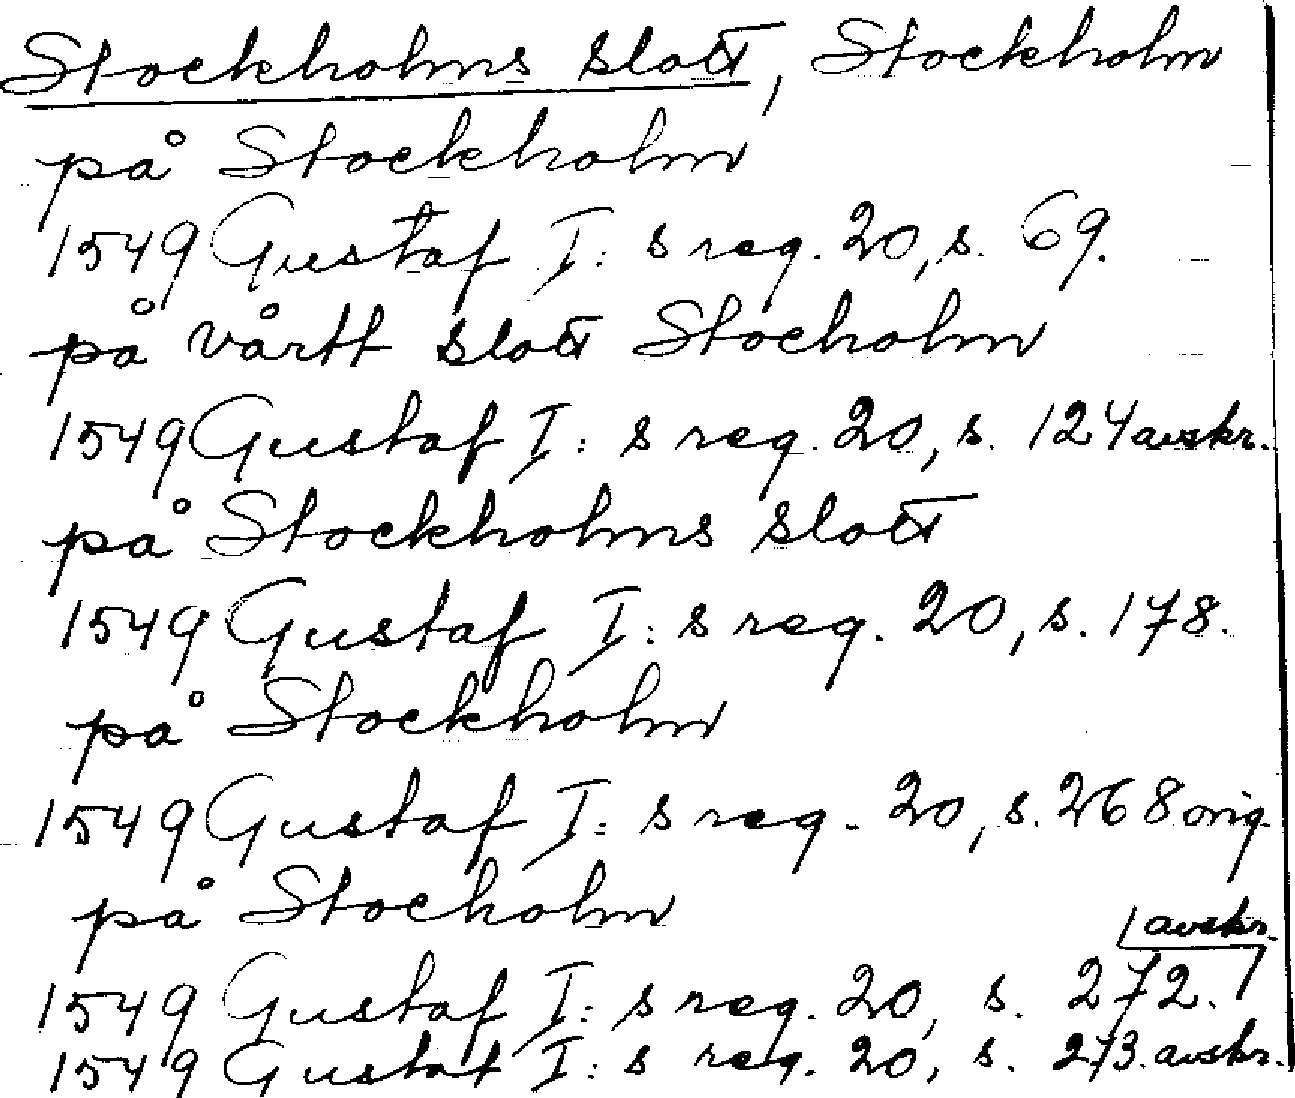 Stockholms slott, Stockholm
på Stockholm
1549 Gustaf I: s reg. 20, s. 69.
på vårtt slott Stocholm
1549 Gustaf I: s reg. 20, s. 124 avskr.
på Stockholms slott
1549 Gustaf I: s reg. 20, s. 178.
på Stockholm
1549 Gustaf I: s reg. 20, s. 268 orig.
på Stocholm
avskr.
1549 Gustaf I: s reg. 20, s. 272.
1549 Gustaf I: s reg. 20, s. 273. avskr.